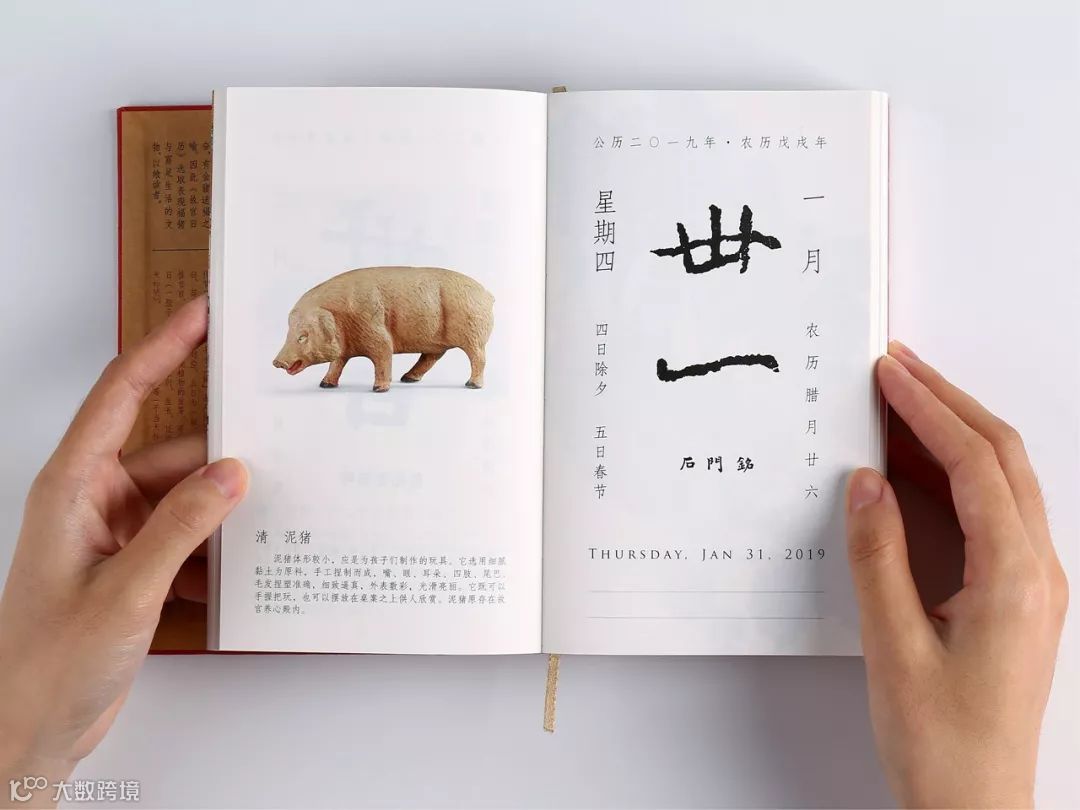 会，有金猪送福之
喻。因此《故宫日
历》选取表现福猪
与富足生活的文
物，以飨读者。
清 泥猪
泥猪体形较小，应是为孩子们制作的玩具。它选用细腻
黏土为原料，手工捏制而成，嘴、眼、耳朵、四肢、尾巴、
毛发捏塑准确，细致逼真，外表敷彩，光滑亮丽。它既可以
手握把玩，也可以摆放在桌案之上供人欣赏。泥猪原存在故
宫养心殿内。
公历二〇一九年·农历戊戌年
一月
农历腊月廿六
卅一
石門銘
星期四
四日除夕 五日春节
THURSDAY, JAN 31, 2019
大数跨境